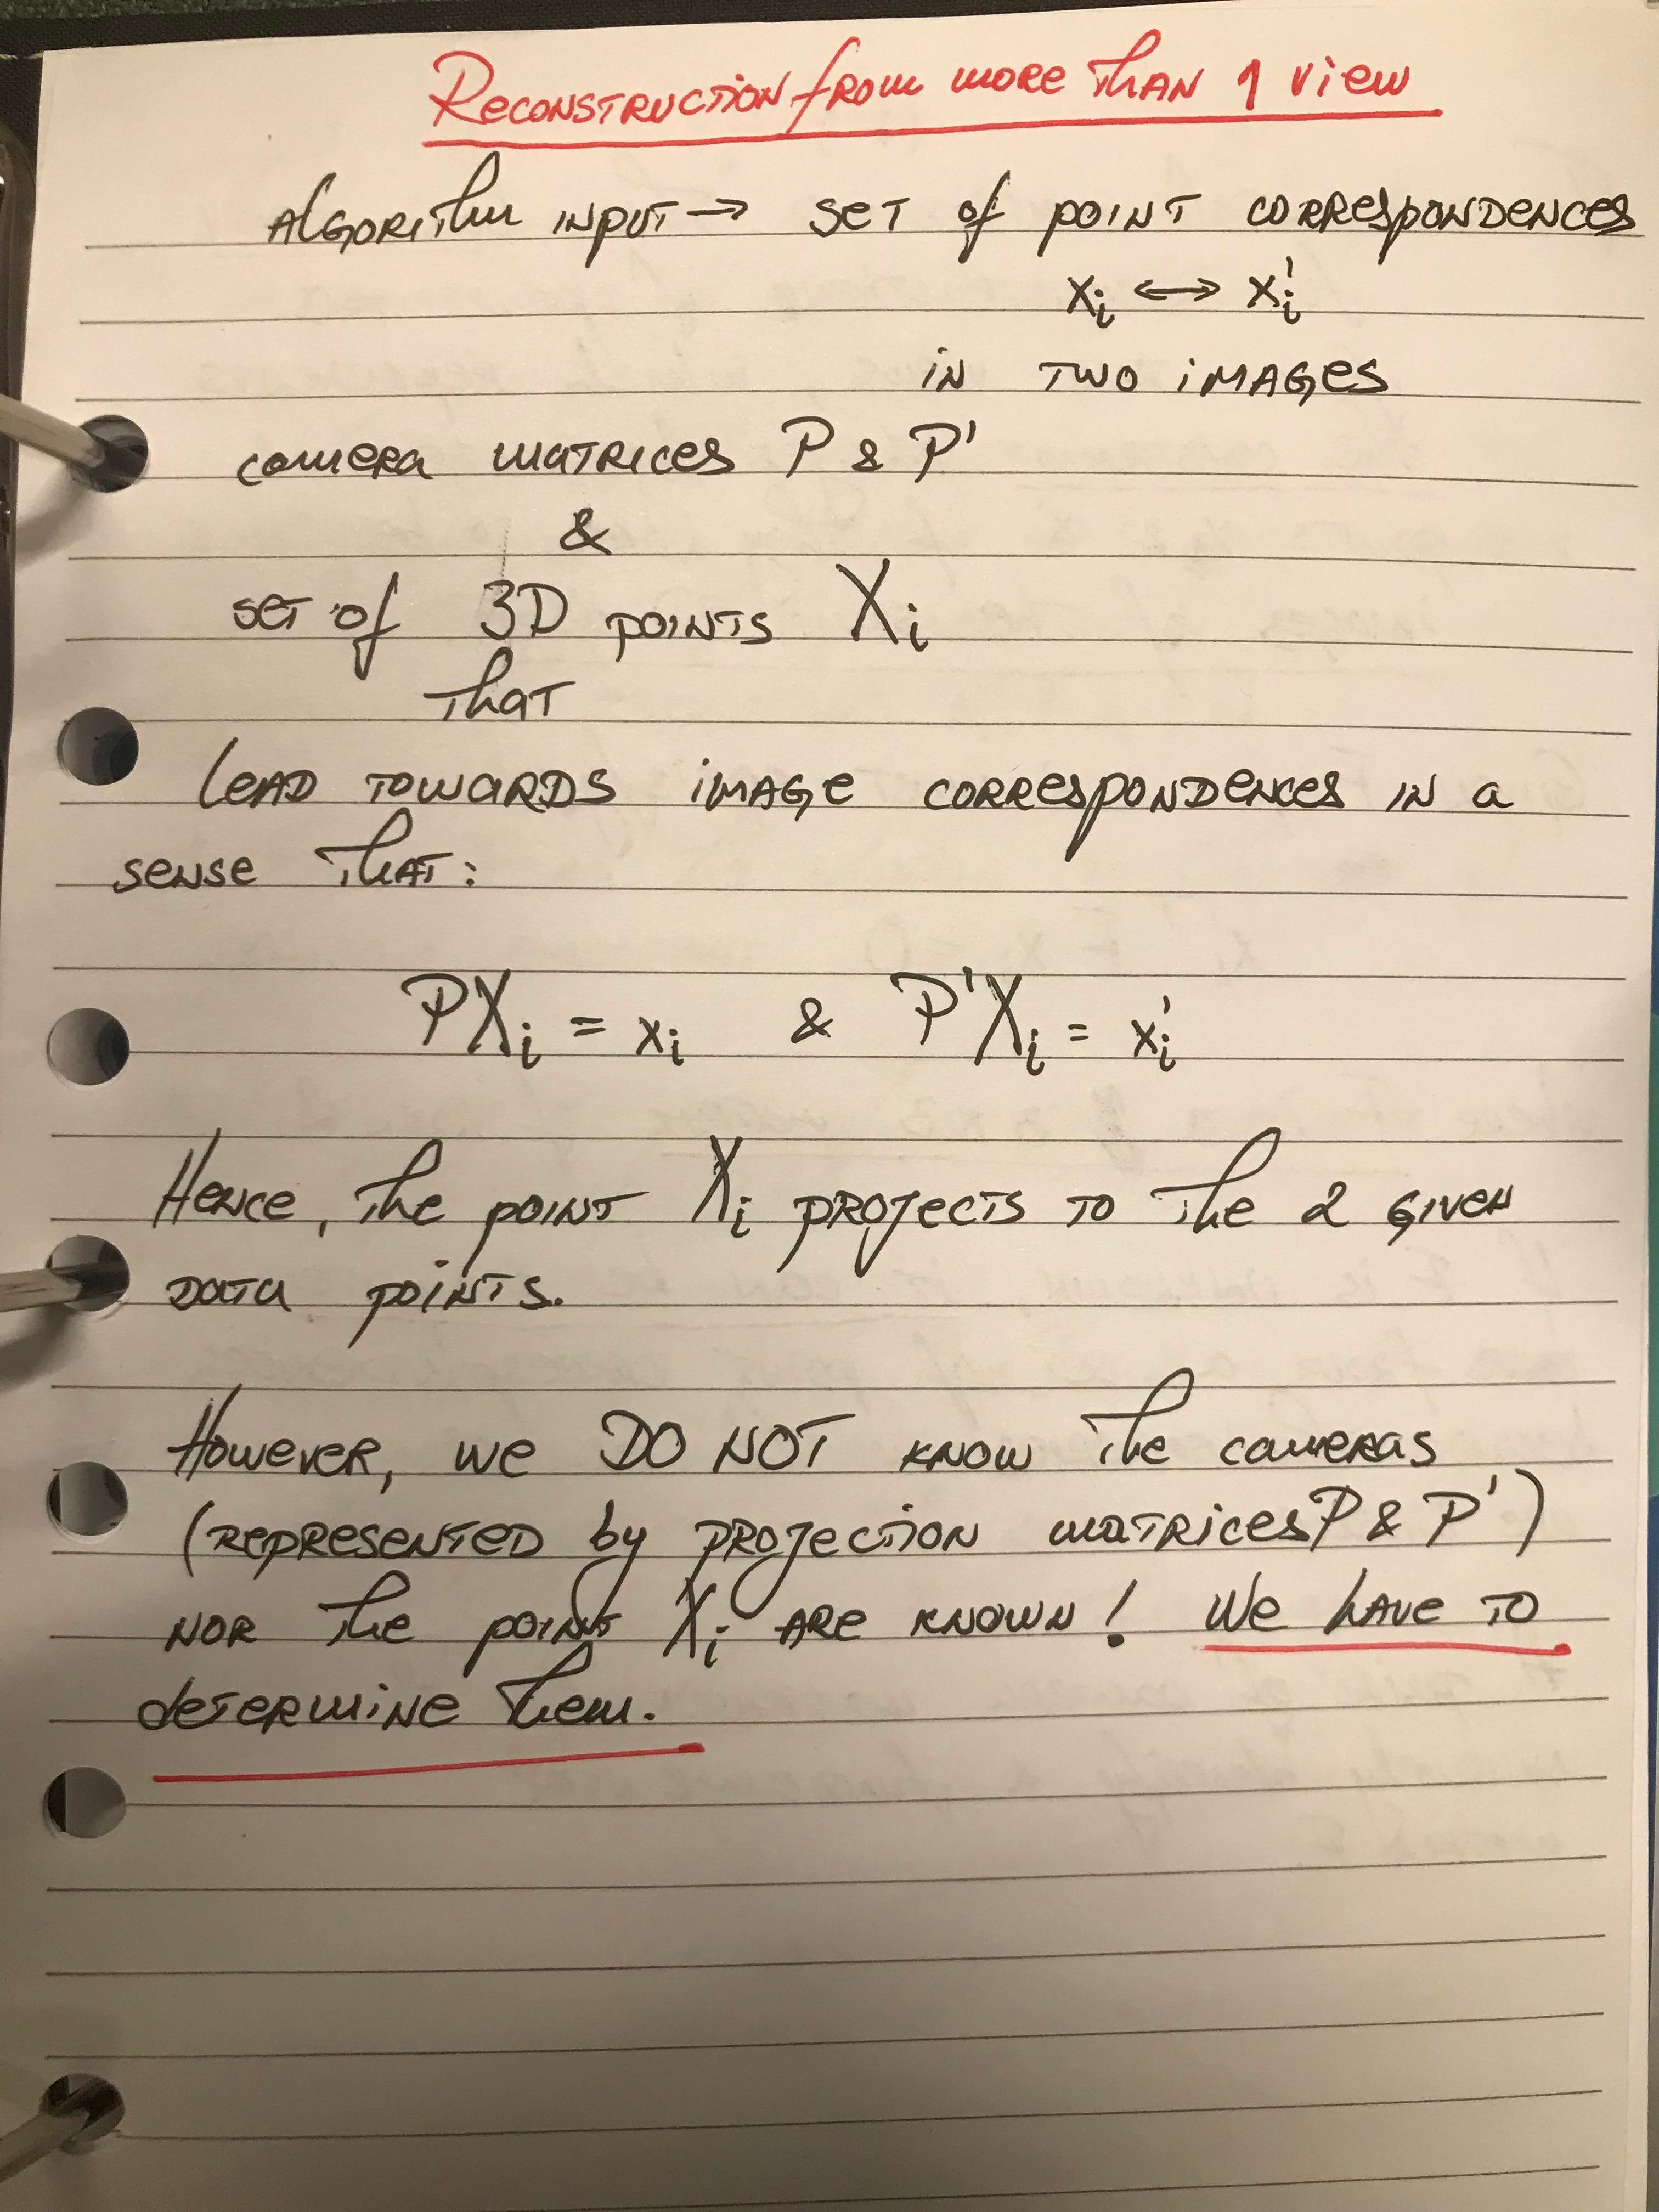 Reconstruction from more than 1 view
Algorithm input → set of point correspondences
xᵢ ↔ xᵢ'
in two images
camera matrices P & P'
&
set of 3D points Xᵢ
that
lead towards image correspondences in a
sense that:
PXᵢ = xᵢ & P'Xᵢ = xᵢ'
Hence, the point Xᵢ projects to the 2 given
data points.
However, we DO NOT know the cameras
(represented by projection matrices P & P')
nor the point Xᵢ are known! We have to
determine them.